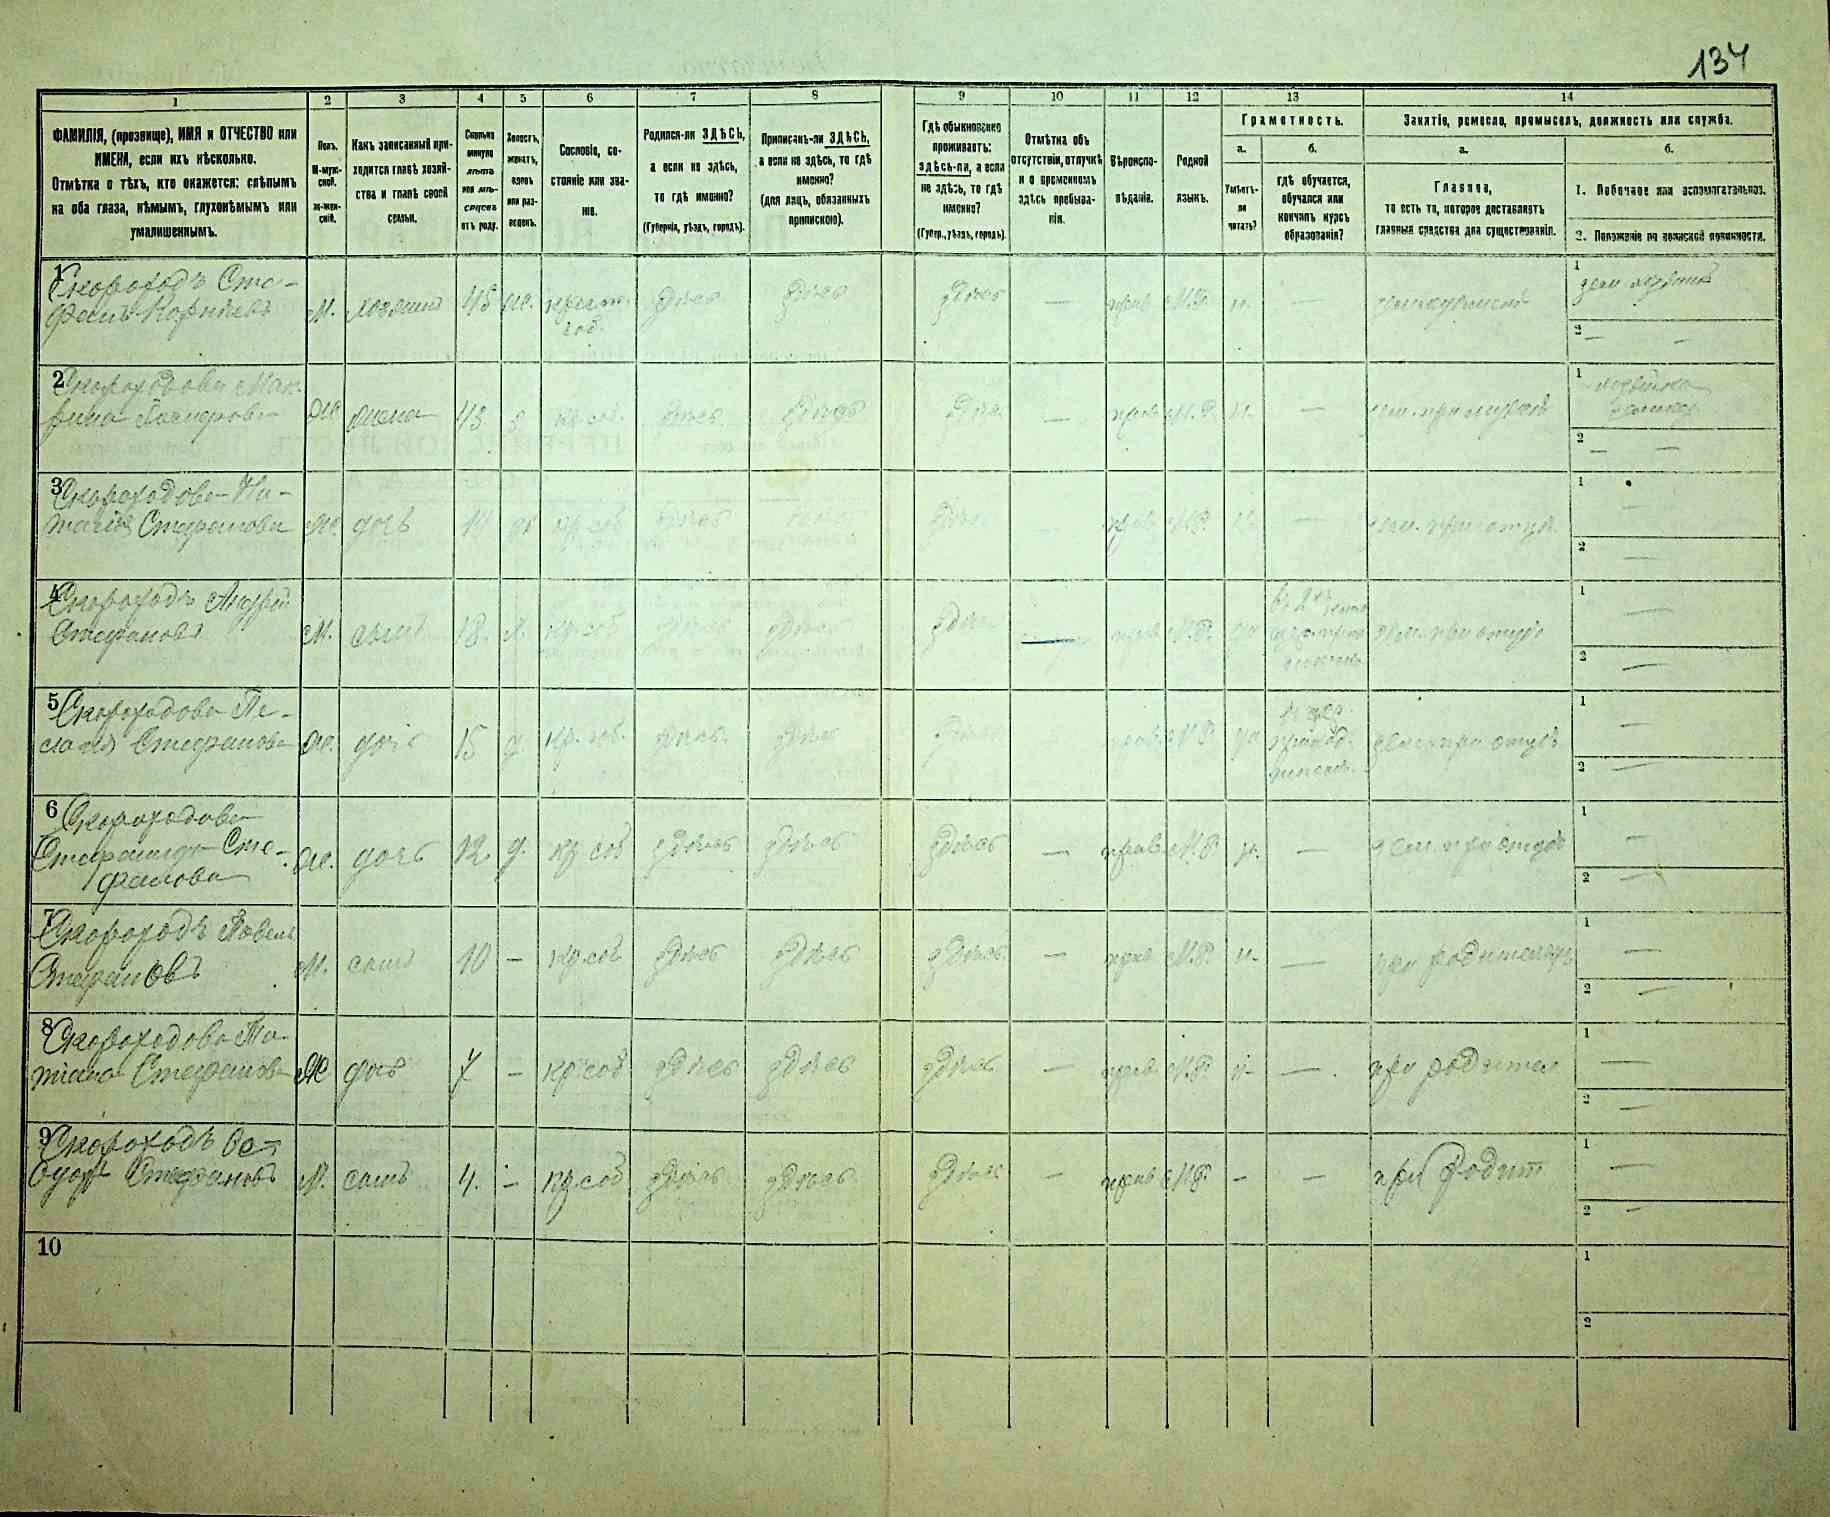 134
1 2 3 4 5 6 7 8 9 10 11 12 13 14
ФАМИЛІЯ, (прозвище), ИМЯ и ОТЧЕСТВО или
ИМЕНА, если ихъ нѣсколько.
Отмѣтка о тѣхъ, кто окажется: слѣпымъ
на оба глаза, нѣмымъ, глухонѣмымъ или
умалишеннымъ.
Полъ.
М-муж-
ской.
ж-жен-
скій.
Какъ записанный при-
ходится главѣ хозяй-
ства и главѣ своей
семьи.
Сколько
минуло
лѣтъ
или мѣ-
сяцевъ
отъ роду.
Холостъ,
женатъ,
вдовъ
или раз-
веденъ.
Сословіе, со-
стояніе или зва-
ніе.
Родился-ли ЗДѢСЬ,
а если не здѣсь,
то гдѣ именно?
(Губернія, уѣздъ, городъ).
Приписанъ-ли ЗДѢСЬ,
а если не здѣсь, то гдѣ
именно?
(для лицъ, обязанныхъ
припискою).
Гдѣ обыкновенно
проживаетъ:
здѣсь-ли, а если
не здѣсь, то гдѣ
именно?
(Губер., уѣздъ, городъ).
Отмѣтка объ
отсутствіи, отлучкѣ
и о временномъ
здѣсь пребыва-
ніи.
Вѣроиспо-
вѣданіе.
Родной
языкъ.
Грамотность.
а.
Умѣетъ-
ли
читать?
б.
гдѣ обучается,
обучался или
кончилъ курсъ
образованія?
Занятіе, ремесло, промыселъ, должность или служба.
а.
Главное,
то есть то, которое доставляетъ
главныя средства для существованія.
б.
1. Побочное или вспомогательное.
2. Положеніе по воинской повинности.
1 Скороходъ Сте-
фанъ Корнѣевъ М. хозяинъ 45 ж. крест. здѣсь здѣсь здѣсь — прав М.Р. н. —
соб.
1
2 — —
2 Скороходова Мак-
рина жена 43 кр. соб. здѣсь здѣсь здѣсь — прав М.Р. н. —
1
2 — —
3 Скороходова На-
талія Стефанова ж. дочь кр. соб здѣсь здѣсь — прав М.Р. н. — зем. при отцѣ
1 —
2 —
4 Скороходъ Андрей
Стефановъ М. сынъ 18. х. кр. соб здѣсь здѣсь здѣсь — прав М.Р. зем. при отцѣ
1 —
2 —
5 Скороходова Пе-
лагія Стефанова ж. дочь 15 д кр. соб. здѣсь здѣсь здѣсь прав М.Р. зем. при отцѣ
1 —
2 —
6 Скороходова
Стефанида Сте-
фанова ж. дочь 12. д. кр соб здѣсь здѣсь здѣсь — прав М.Р. н. — зем. при отцѣ
1 —
2 —
7 Скороходъ Павелъ
Стефановъ М. сынъ 10 — кр. соб здѣсь здѣсь здѣсь — прав М.Р. н. — при родителяхъ
1 —
2 —
8 Скороходова Та-
тіана Стефанова ж дочь 7 — кр соб здѣсь здѣсь здѣсь — прав М.Р. н — при родител
1 —
2 —
9 Скороходъ Ѳе-
одоръ Стефановъ М. сынъ 4. — кр. соб здѣсь здѣсь здѣсь — прав М.Р. — — при родит
1 —
2 —
10
1
2